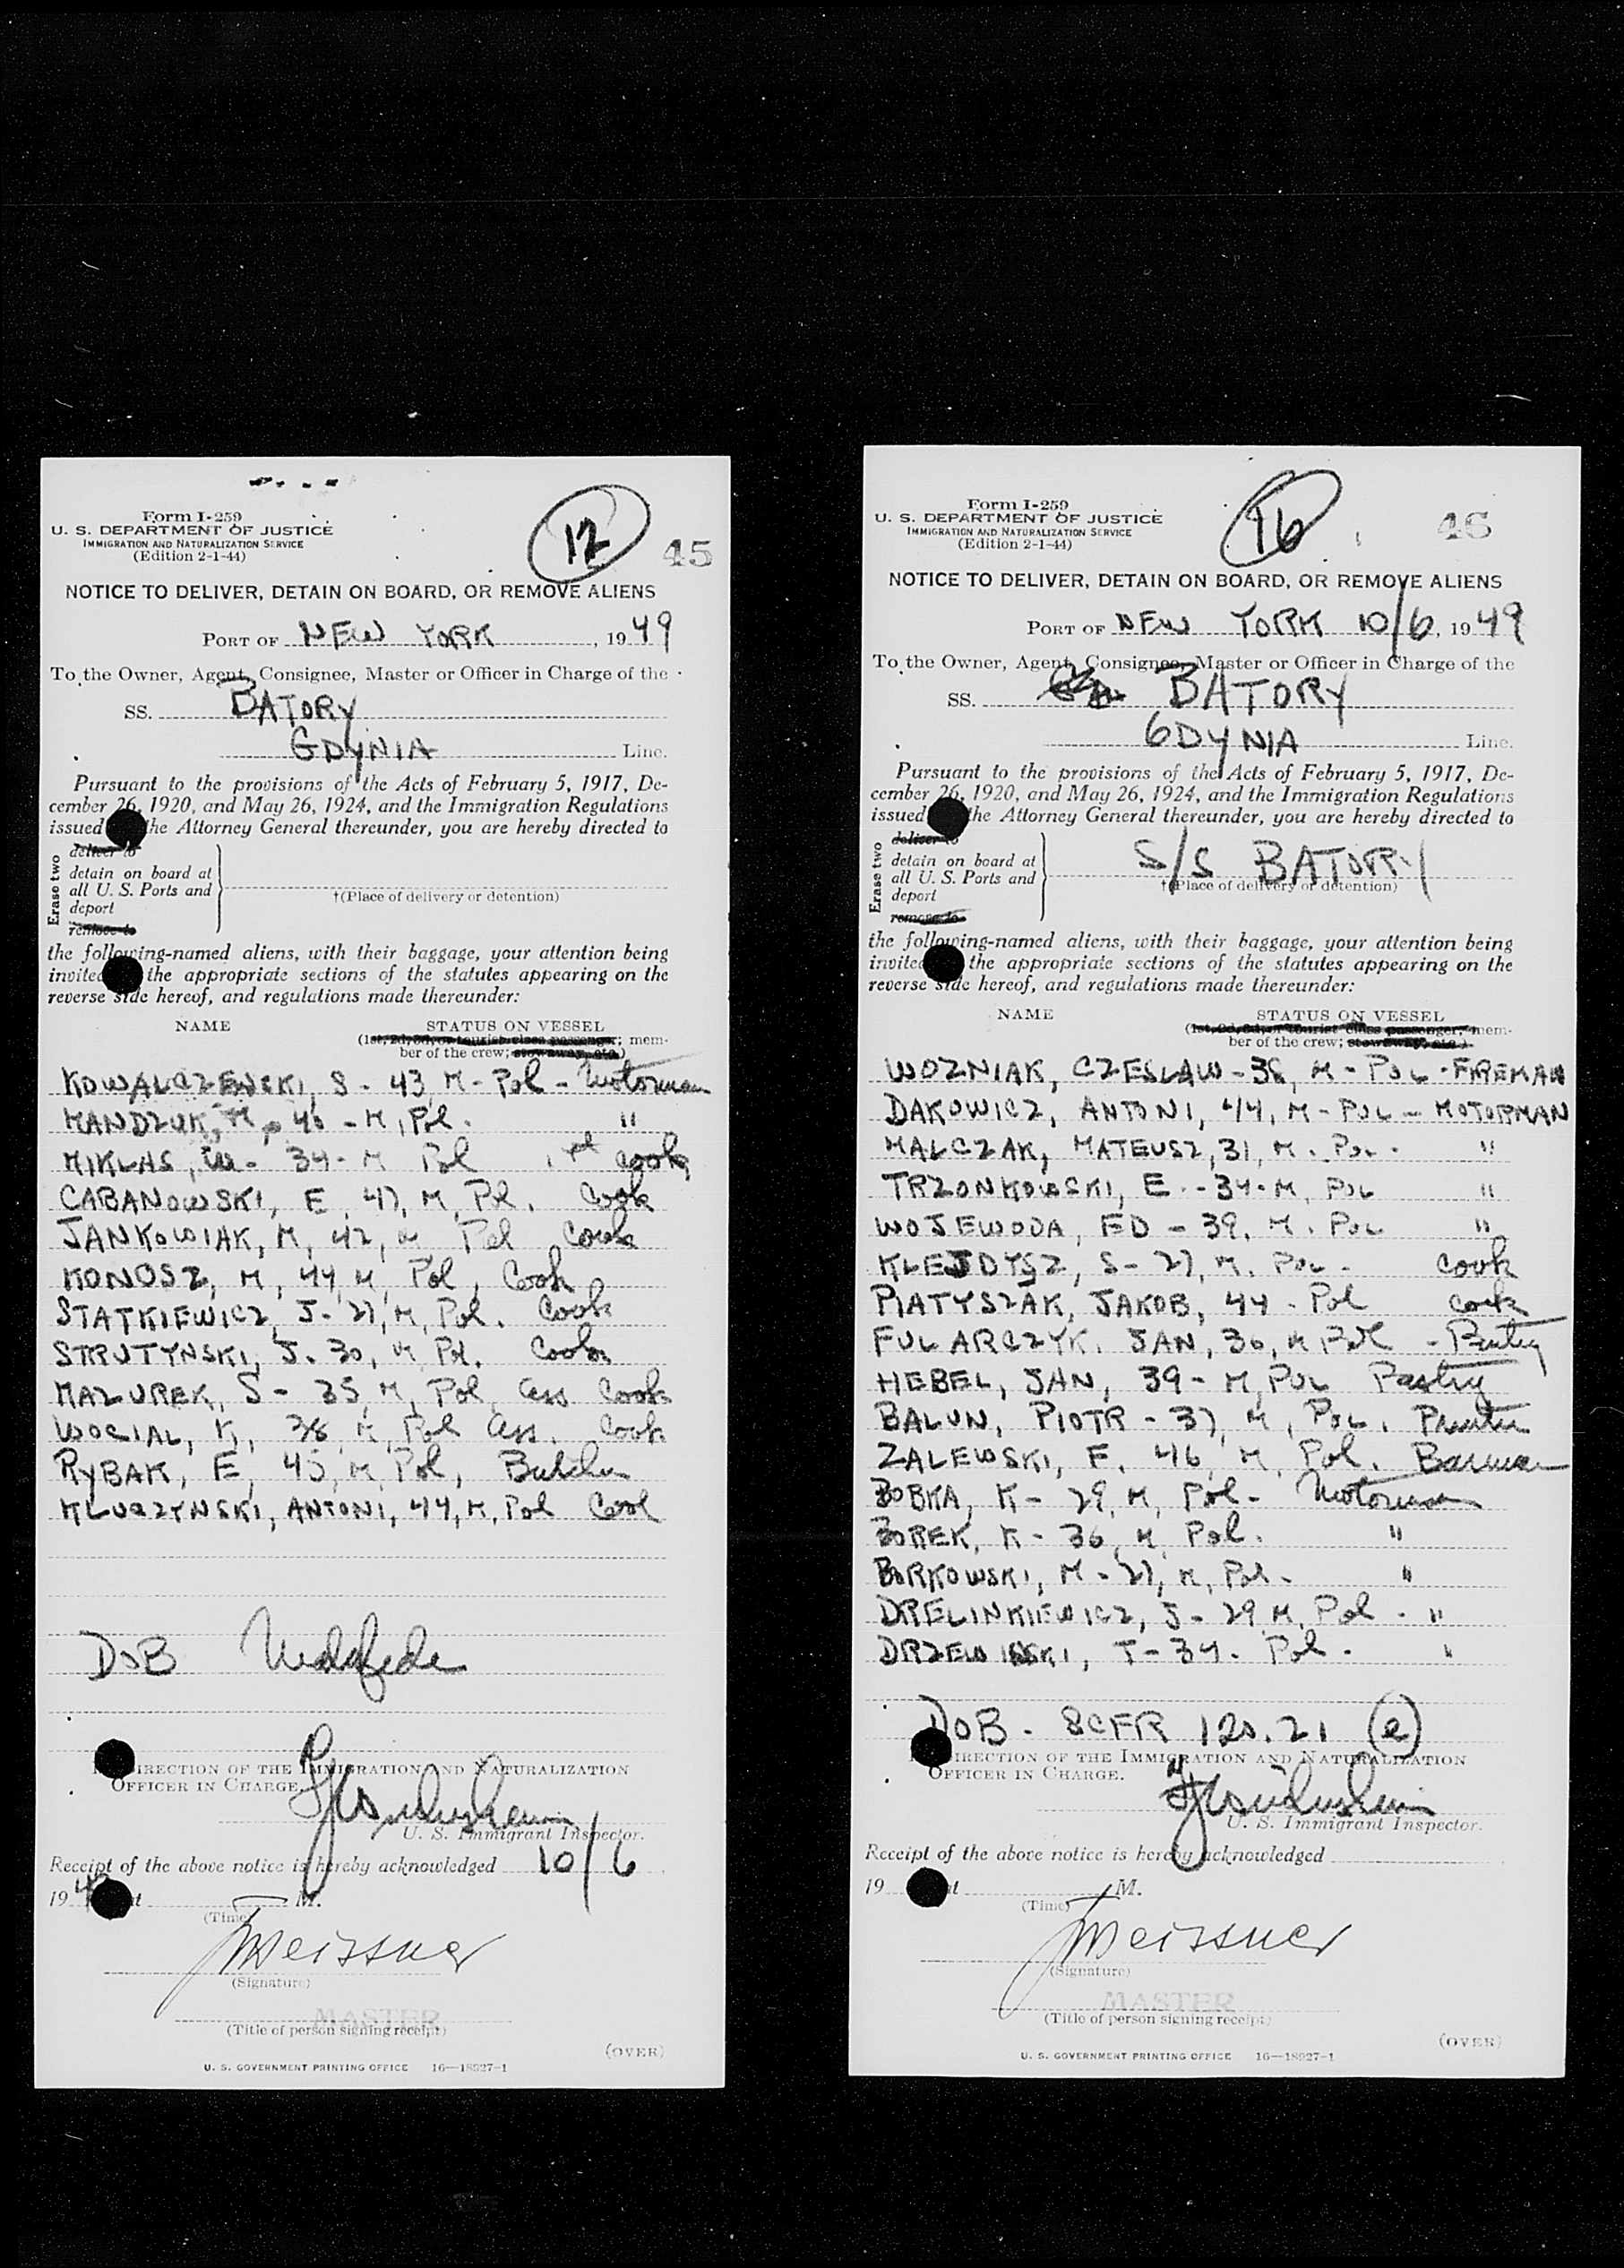 Form I-259
U. S. DEPARTMENT OF JUSTICE
IMMIGRATION AND NATURALIZATION SERVICE
(Edition 2-1-44)
12
45
NOTICE TO DELIVER, DETAIN ON BOARD, OR REMOVE ALIENS
PORT OF NEW YORK, 1949
To the Owner, Agent, Consignee, Master or Officer in Charge of the
SS. BATORY
GDYNIA Line.
Pursuant to the provisions of the Acts of February 5, 1917, De-
cember 26, 1920, and May 26, 1924, and the Immigration Regulations
issued the Attorney General thereunder, you are hereby directed to
Erase two
deliver to
detain on board at
all U. S. Ports and
deport
remove to
†(Place of delivery or detention)
the following-named aliens, with their baggage, your attention being
invited the appropriate sections of the statutes appearing on the
reverse side hereof, and regulations made thereunder:
NAME STATUS ON VESSEL
(1st, 2d, 3d, or tourist class passenger; mem-
ber of the crew; stowaway, etc.)
KOWALCZEWSKI, S - 43 M - Pol - Motorman
MANDZUK, M, 46 - M, Pol. "
MIKLAS, W - 34 - M Pol 1st cook
CABANOWSKI, E, 47, M, Pol. Cook
JANKOWIAK, M, 42, M Pol, Cook
KONOSZ, M, 44, M, Pol, Cook
STATKIEWICZ, J - 27, M, Pol. Cook
STRUTYNSKI, J. 30, M, Pol. Cook
MAZUREK, S - 35, M, Pol, Ass Cook
WOCIAL, K, 38, M, Pol Ass. Cook
RYBAK, E, 45, M, Pol, Butcher
KLUCZYNSKI, ANTONI, 44, M, Pol Cook
DOB
DIRECTION OF THE IMMIGRATION AND NATURALIZATION
OFFICER IN CHARGE.
U. S. Immigrant Inspector.
Receipt of the above notice is hereby acknowledged 10/6,
1949 at M.
(Time)
Meissner
(Signature)
MASTER
(Title of person signing receipt)
(OVER)
U. S. GOVERNMENT PRINTING OFFICE 16—18027-1
Form I-259
U. S. DEPARTMENT OF JUSTICE
IMMIGRATION AND NATURALIZATION SERVICE
(Edition 2-1-44)
16
46
NOTICE TO DELIVER, DETAIN ON BOARD, OR REMOVE ALIENS
PORT OF NEW YORK 10/6, 1949
To the Owner, Agent, Consignee, Master or Officer in Charge of the
SS. BATORY
GDYNIA Line.
Pursuant to the provisions of the Acts of February 5, 1917, De-
cember 26, 1920, and May 26, 1924, and the Immigration Regulations
issued the Attorney General thereunder, you are hereby directed to
Erase two
deliver to
detain on board at
all U. S. Ports and
deport
remove to
S/S BATORY
†(Place of delivery or detention)
the following-named aliens, with their baggage, your attention being
invited the appropriate sections of the statutes appearing on the
reverse side hereof, and regulations made thereunder:
NAME STATUS ON VESSEL
(1st, 2d, 3d, or tourist class passenger; mem-
ber of the crew; stowaway, etc.)
WOZNIAK, CZESLAW - 38, M - POL - FIREMAN
DAKOWICZ, ANTONI, 44, M - POL - MOTORMAN
MALCZAK, MATEUSZ, 31, M. POL. "
TRZONKOWSKI, E. - 34 - M, POL "
WOJEWODA, ED - 39, M. POL "
KLEJDYSZ, S - 27, M. POL - cook
PIATYSZAK, JAKOB, 44 - Pol cook
FULARCZYK, JAN, 36, M Pol - Pantry
HEBEL, JAN, 39 - M, POL Pastry
BALUN, PIOTR - 37, M, POL, Printer
ZALEWSKI, F. 46, M, Pol. Barman
BOBKA, K - 29, M, Pol - Motorman
BOREK, K - 36, M, Pol. "
BORKOWSKI, M - 27, M, Pol - "
DRELINKIEWICZ, J - 29 M, Pol - "
DRZEWINSKI, T - 34. Pol - "
DOB - 8CFR 120.21 (e)
DIRECTION OF THE IMMIGRATION AND NATURALIZATION
OFFICER IN CHARGE.
U. S. Immigrant Inspector.
Receipt of the above notice is hereby acknowledged
19 at M.
(Time)
Meissner
(Signature)
MASTER
(Title of person signing receipt)
(OVER)
U. S. GOVERNMENT PRINTING OFFICE 16—18027-1